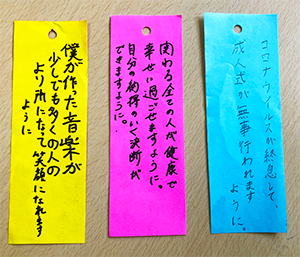 コロナウイルスが終息して、
成人式が無事行われます
ように。
関わる全ての人が健康で
幸せに過ごせますように。
自分の納得のいく決断が
できますように。
僕が作った音楽が
少しでも多くの人の
より所になって笑顔になれます
ように